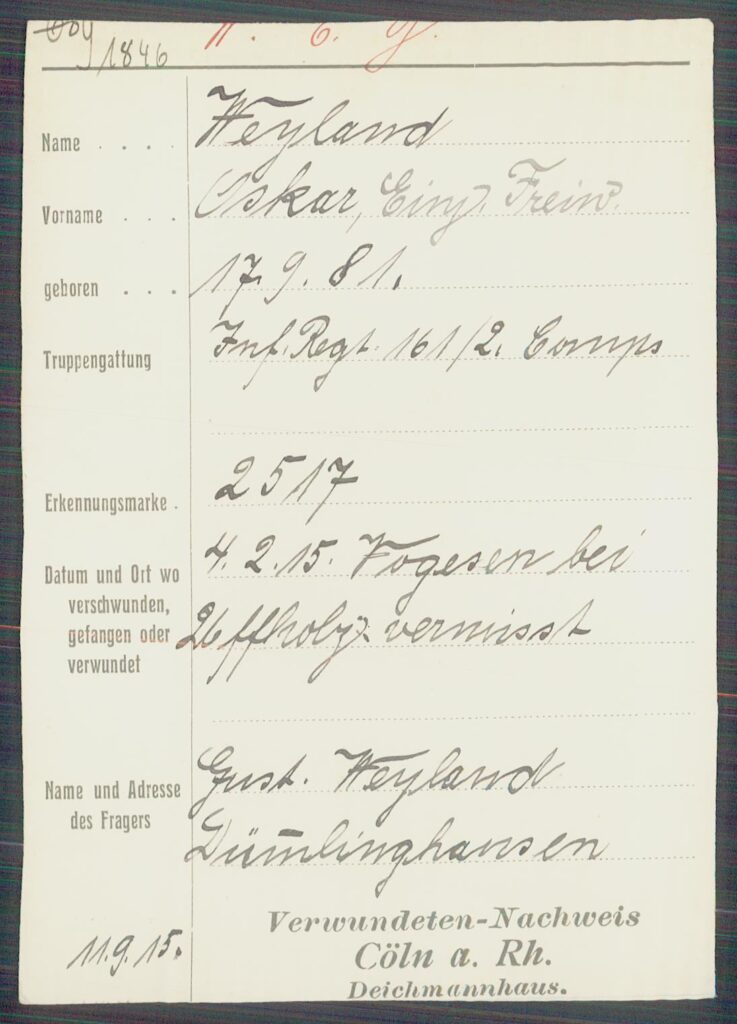 1846
Name . . . . Weyland
Vorname . . . Oskar, Einj. Freiw.
geboren . . . 17.9.81.
Truppengattung Inf. Regt. 161/2. Comps
Erkennungsmarke . 2517
Datum und Ort wo 4.2.15. Vogesen bei
verschwunden,
gefangen oder Uffholz vermisst
verwundet
Gust. Weyland
Name und Adresse
des Fragers Dümlinghausen
Verwundeten-Nachweis
11.9.15. Cöln a. Rh.
Deichmannhaus.